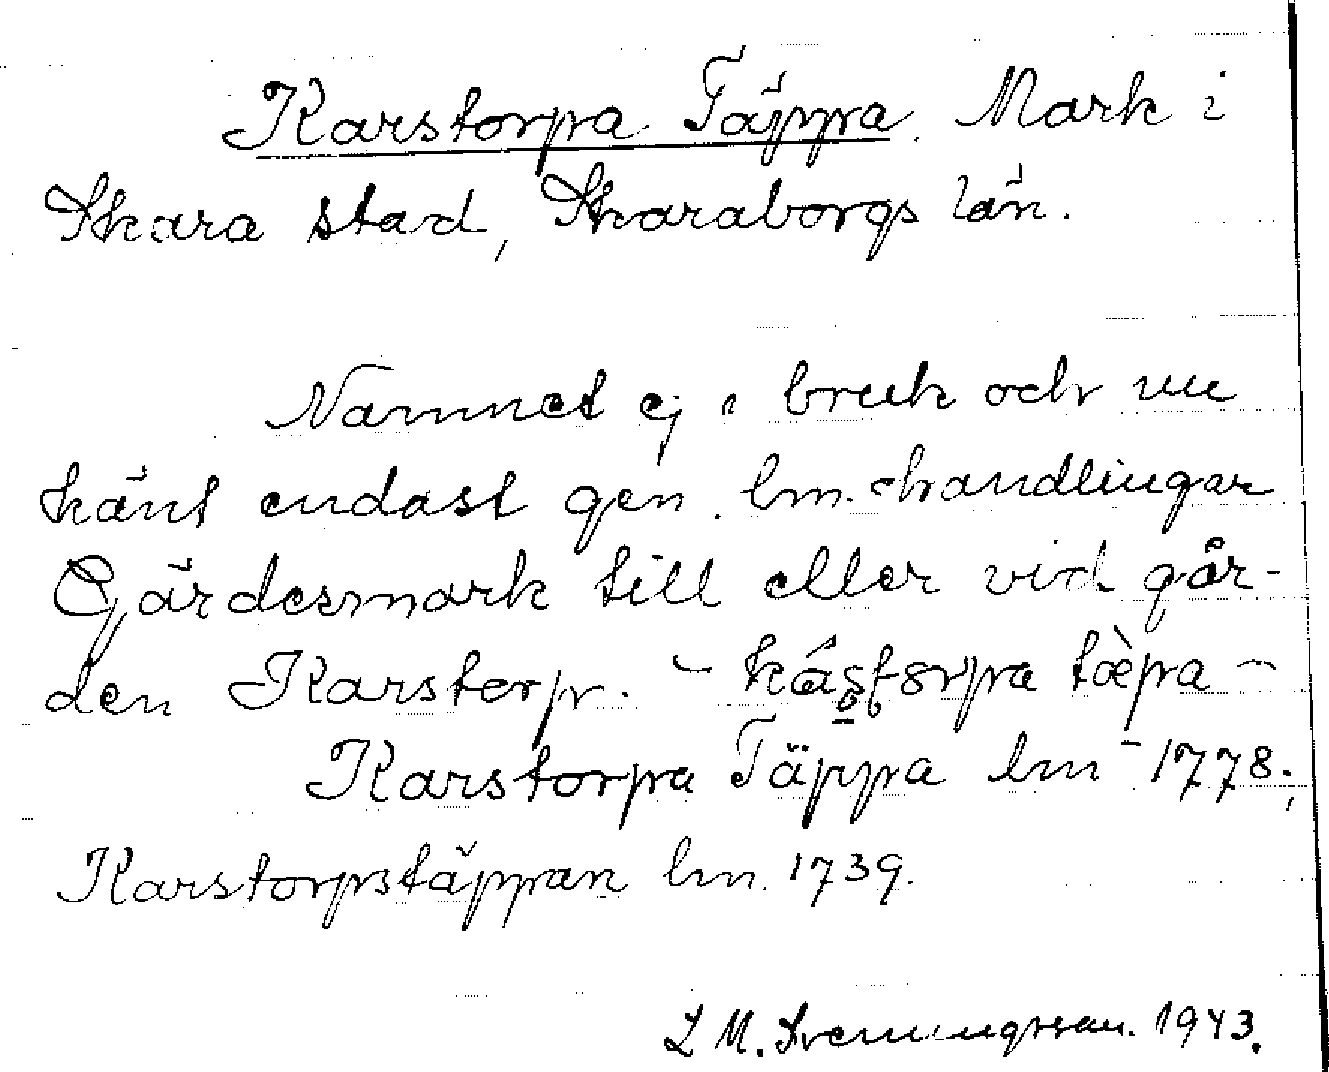 Karstorpa Täppa. Mark i
Skara stad, Skaraborgs län.
Namnet ej i bruk och nu
känt endast gen. lm. handlingar
Gärdesmark till eller vid går-
den Karstorp. - tæ̀pa -
Karstorpa Täppa lm 1778;
Karstorpstäppan lm. 1739.
L M. Svenungsson. 1943.